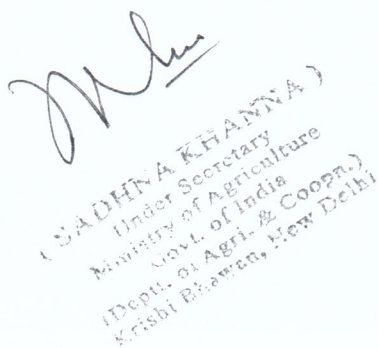 ( SADHNA KHANNA )
Under Secretary
Ministry of Agriculture
Govt. of India
(Deptt. of Agri. & Coopn.)
Krishi Bhawan, New Delhi